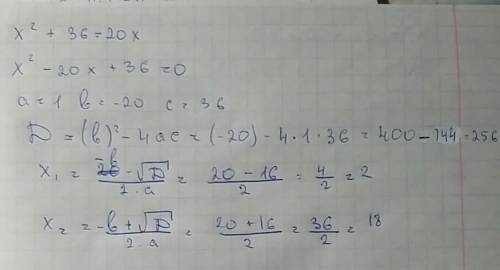 x² + 36 = 20x
x² - 20x + 36 = 0
a = 1 b = -20 c = 36
D = (b)² - 4ac = (-20) - 4·1·36 = 400 - 144 = 256
x₁ = (-b - √D)/(2·a) = (20 - 16)/2 = 4/2 = 2
x₂ = (-b + √D)/(2·a) = (20 + 16)/2 = 36/2 = 18